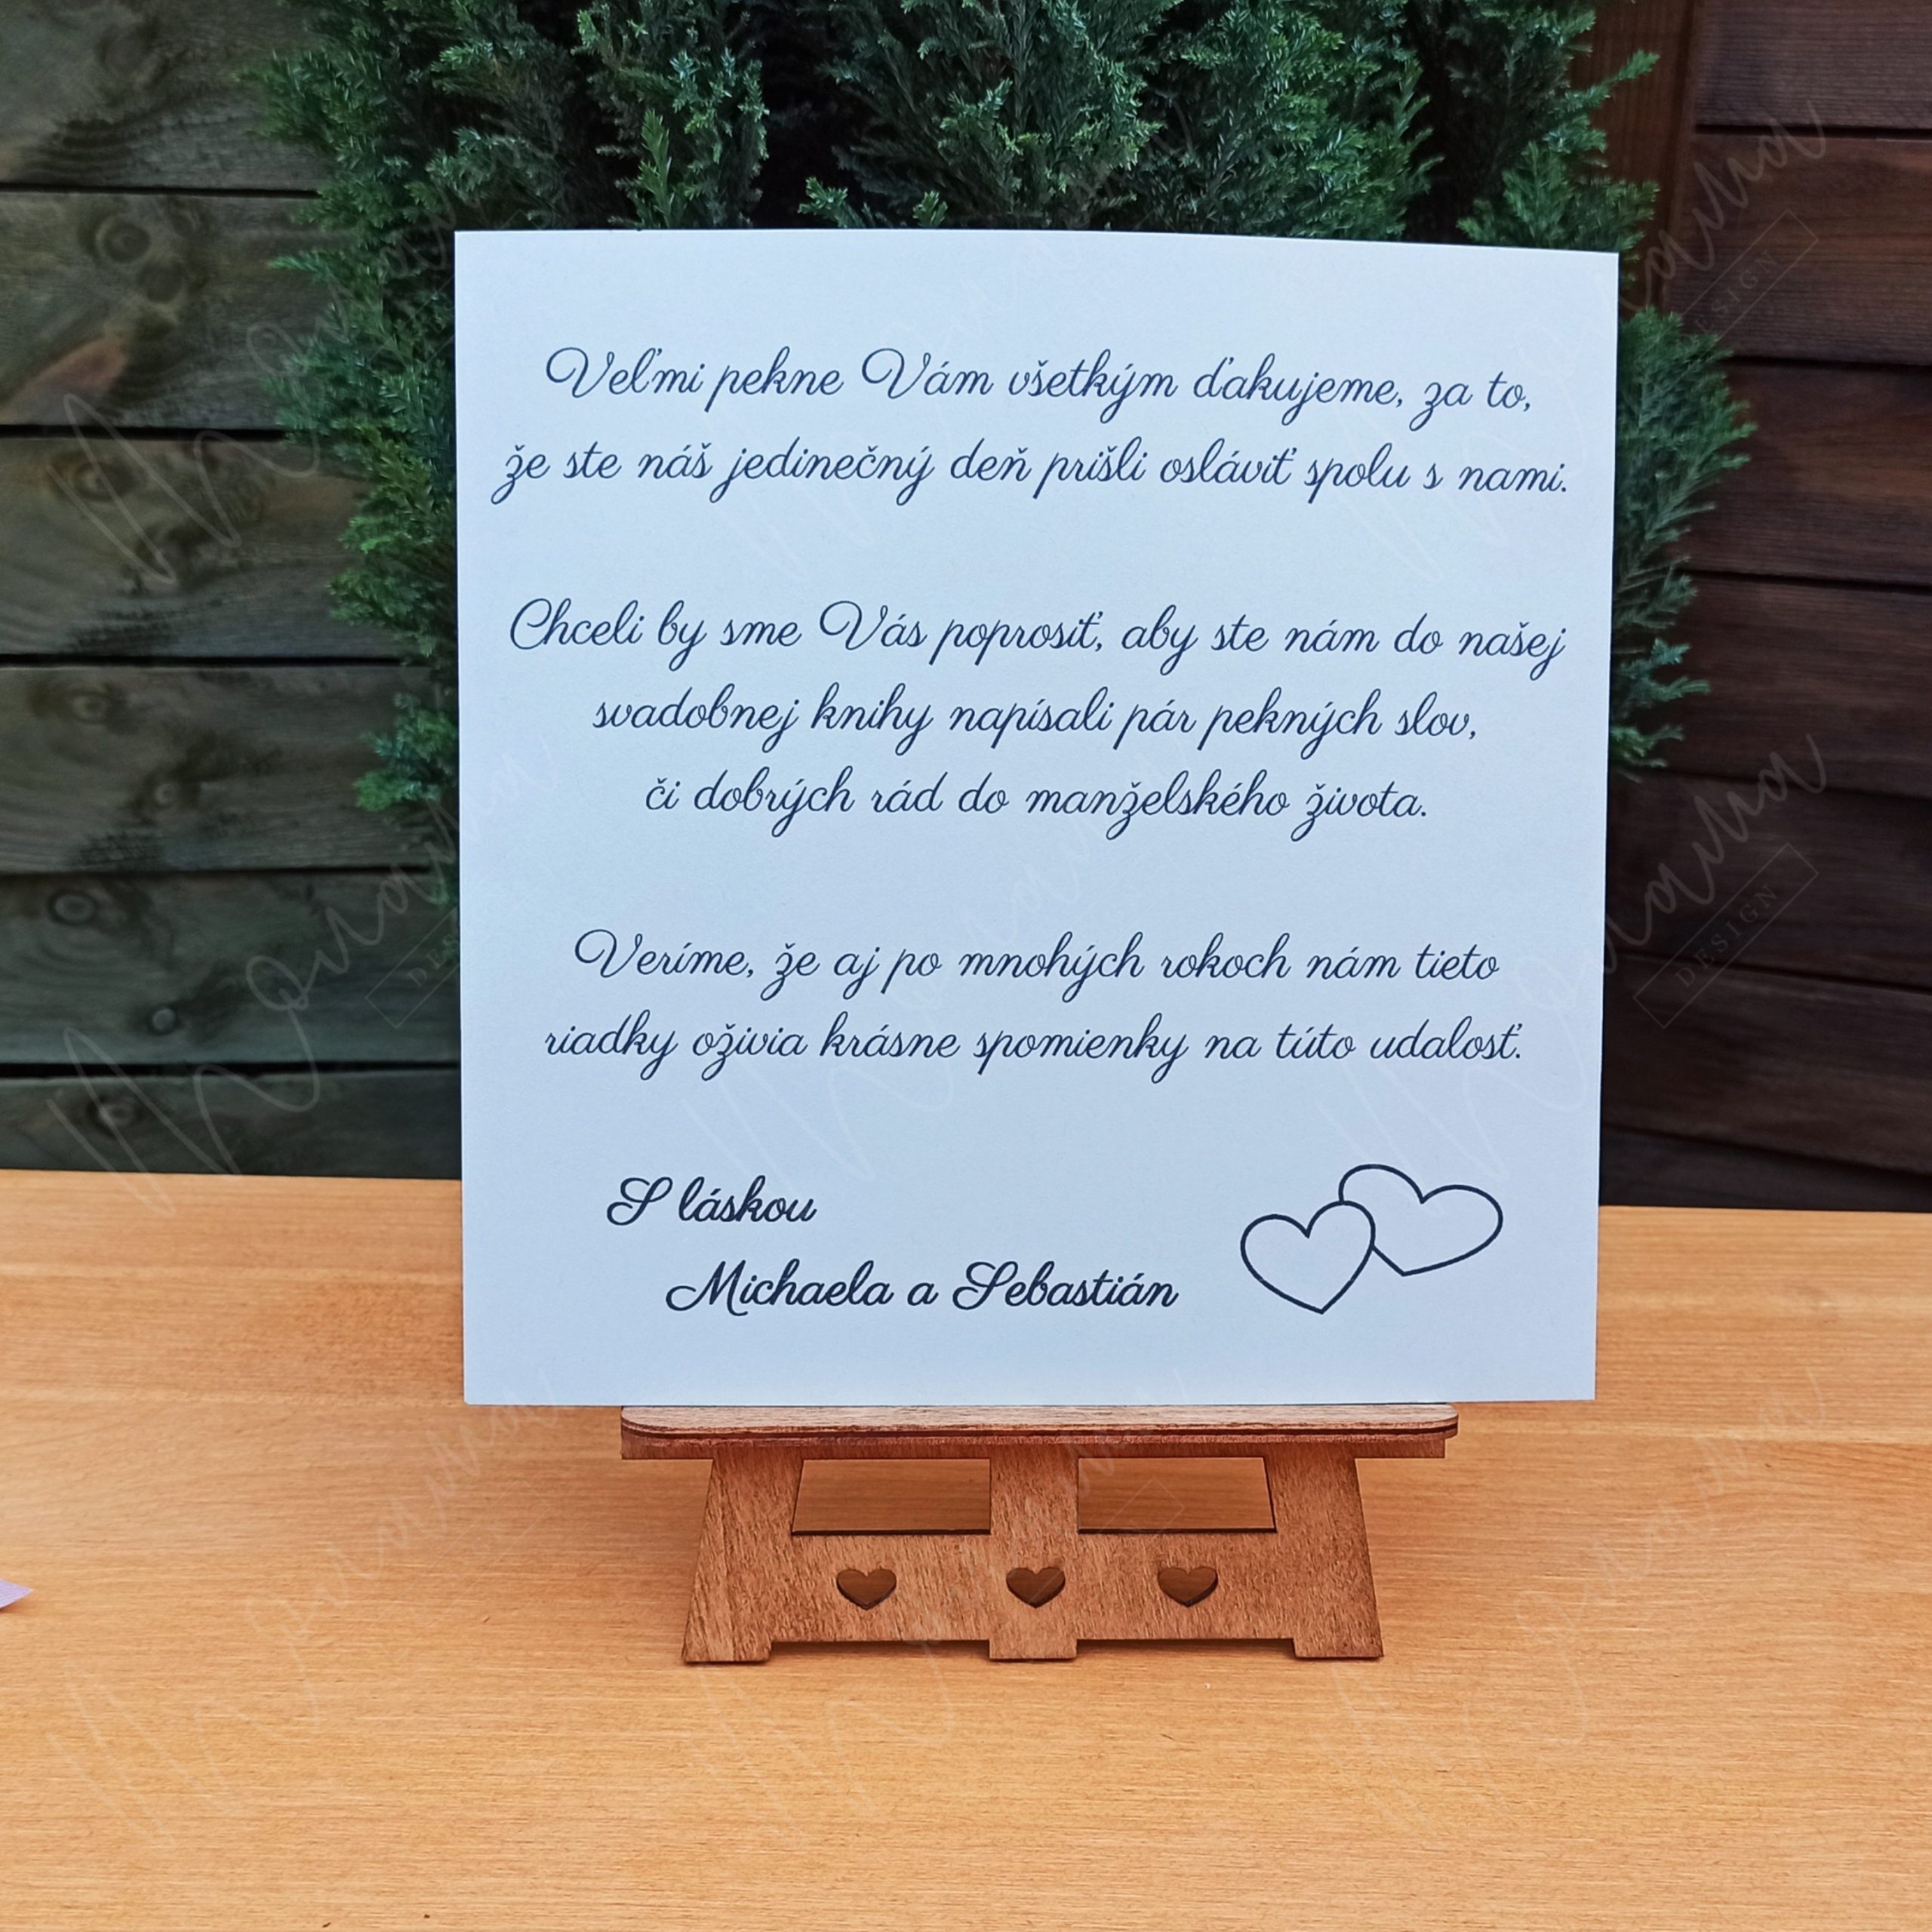 Veľmi pekne Vám všetkým ďakujeme, za to,
že ste náš jedinečný deň prišli osláviť spolu s nami.
Chceli by sme Vás poprosiť, aby ste nám do našej
svadobnej knihy napísali pár pekných slov,
či dobrých rád do manželského života.
Veríme, že aj po mnohých rokoch nám tieto
riadky oživia krásne spomienky na túto udalosť.
S láskou
Michaela a Sebastián
DESIGN